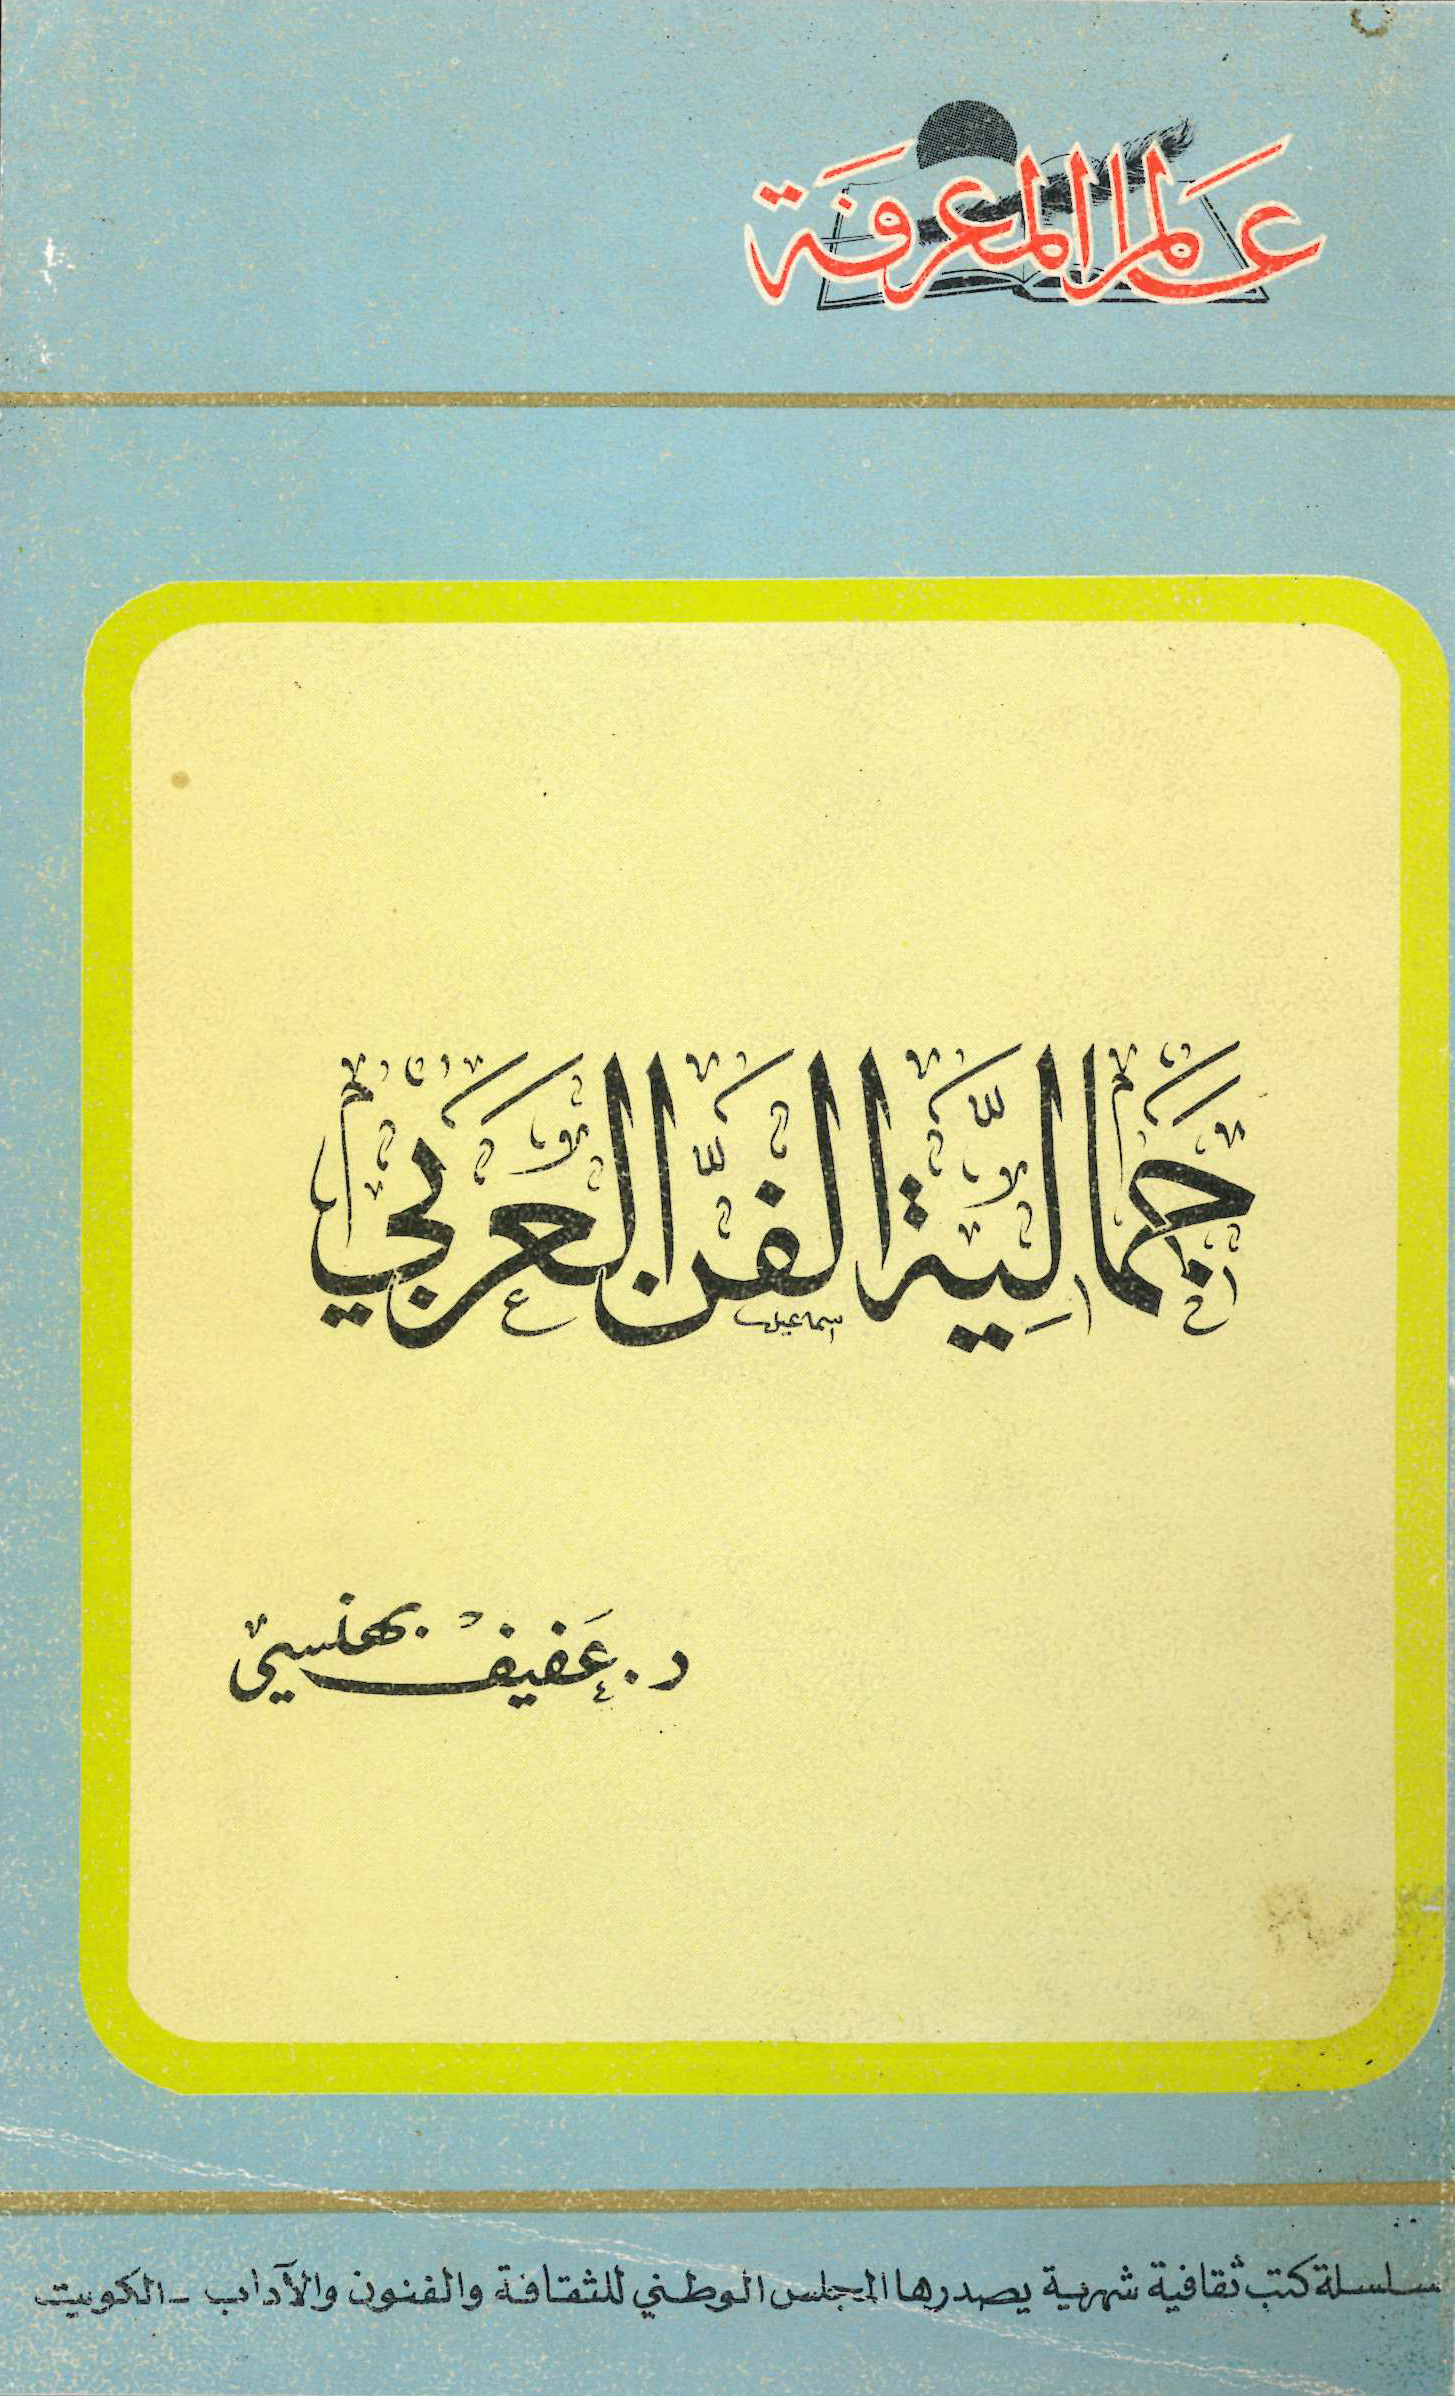 عَالم المعرفَة
جَمَاليَّة الفَنّ العَرَبي
اسماعيل
د. عَفيف بهنسي
سلسلة كتب ثقافية شهرية يصدرها المجلس الوطني للثقافة والفنون والآداب - الكويت